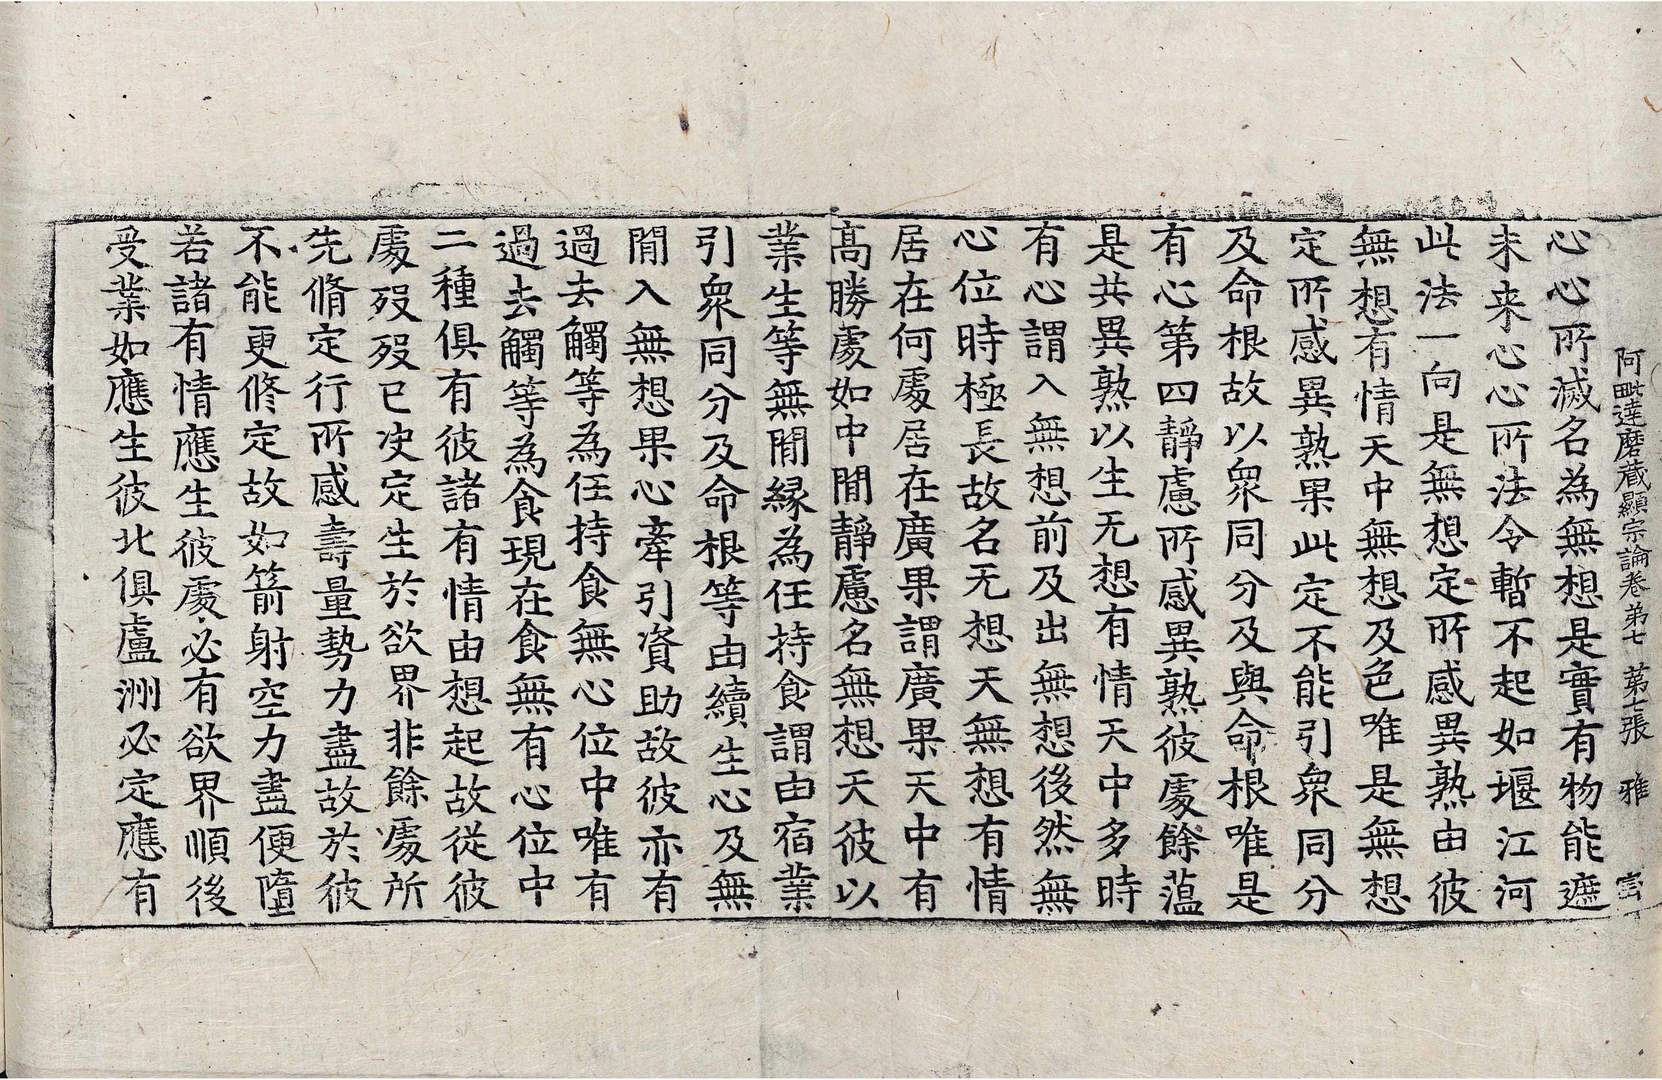 阿毗達磨藏顯宗論卷第七 第七張 雅
心心所滅名為無想是實有物能遮
未来心心所法令暫不起如堰江河
此法一向是無想定所感異熟由彼
無想有情天中無想及色唯是無想
定所感異熟果此定不能引衆同分
及命根故以衆同分及與命根唯是
有心第四靜慮所感異熟彼處餘蘊
是共異熟以生无想有情天中多時
有心謂入無想前及出無想後然無
心位時極長故名无想天無想有情
居在何處居在廣果謂廣果天中有
高勝處如中閒靜慮名無想天彼以
業生等無閒縁為任持食謂由宿業
引衆同分及命根等由續生心及無
閒入無想果心牽引資助故彼亦有
過去觸等為任持食無心位中唯有
過去觸等為食現在食無有心位中
二種俱有彼諸有情由想起故從彼
處歿歿已决定生於欲界非餘處所
先脩定行所感壽量勢力盡故於彼
不能更修定故如箭射空力盡便墮
若諸有情應生彼處必有欲界順後
受業如應生彼北俱盧洲必定應有